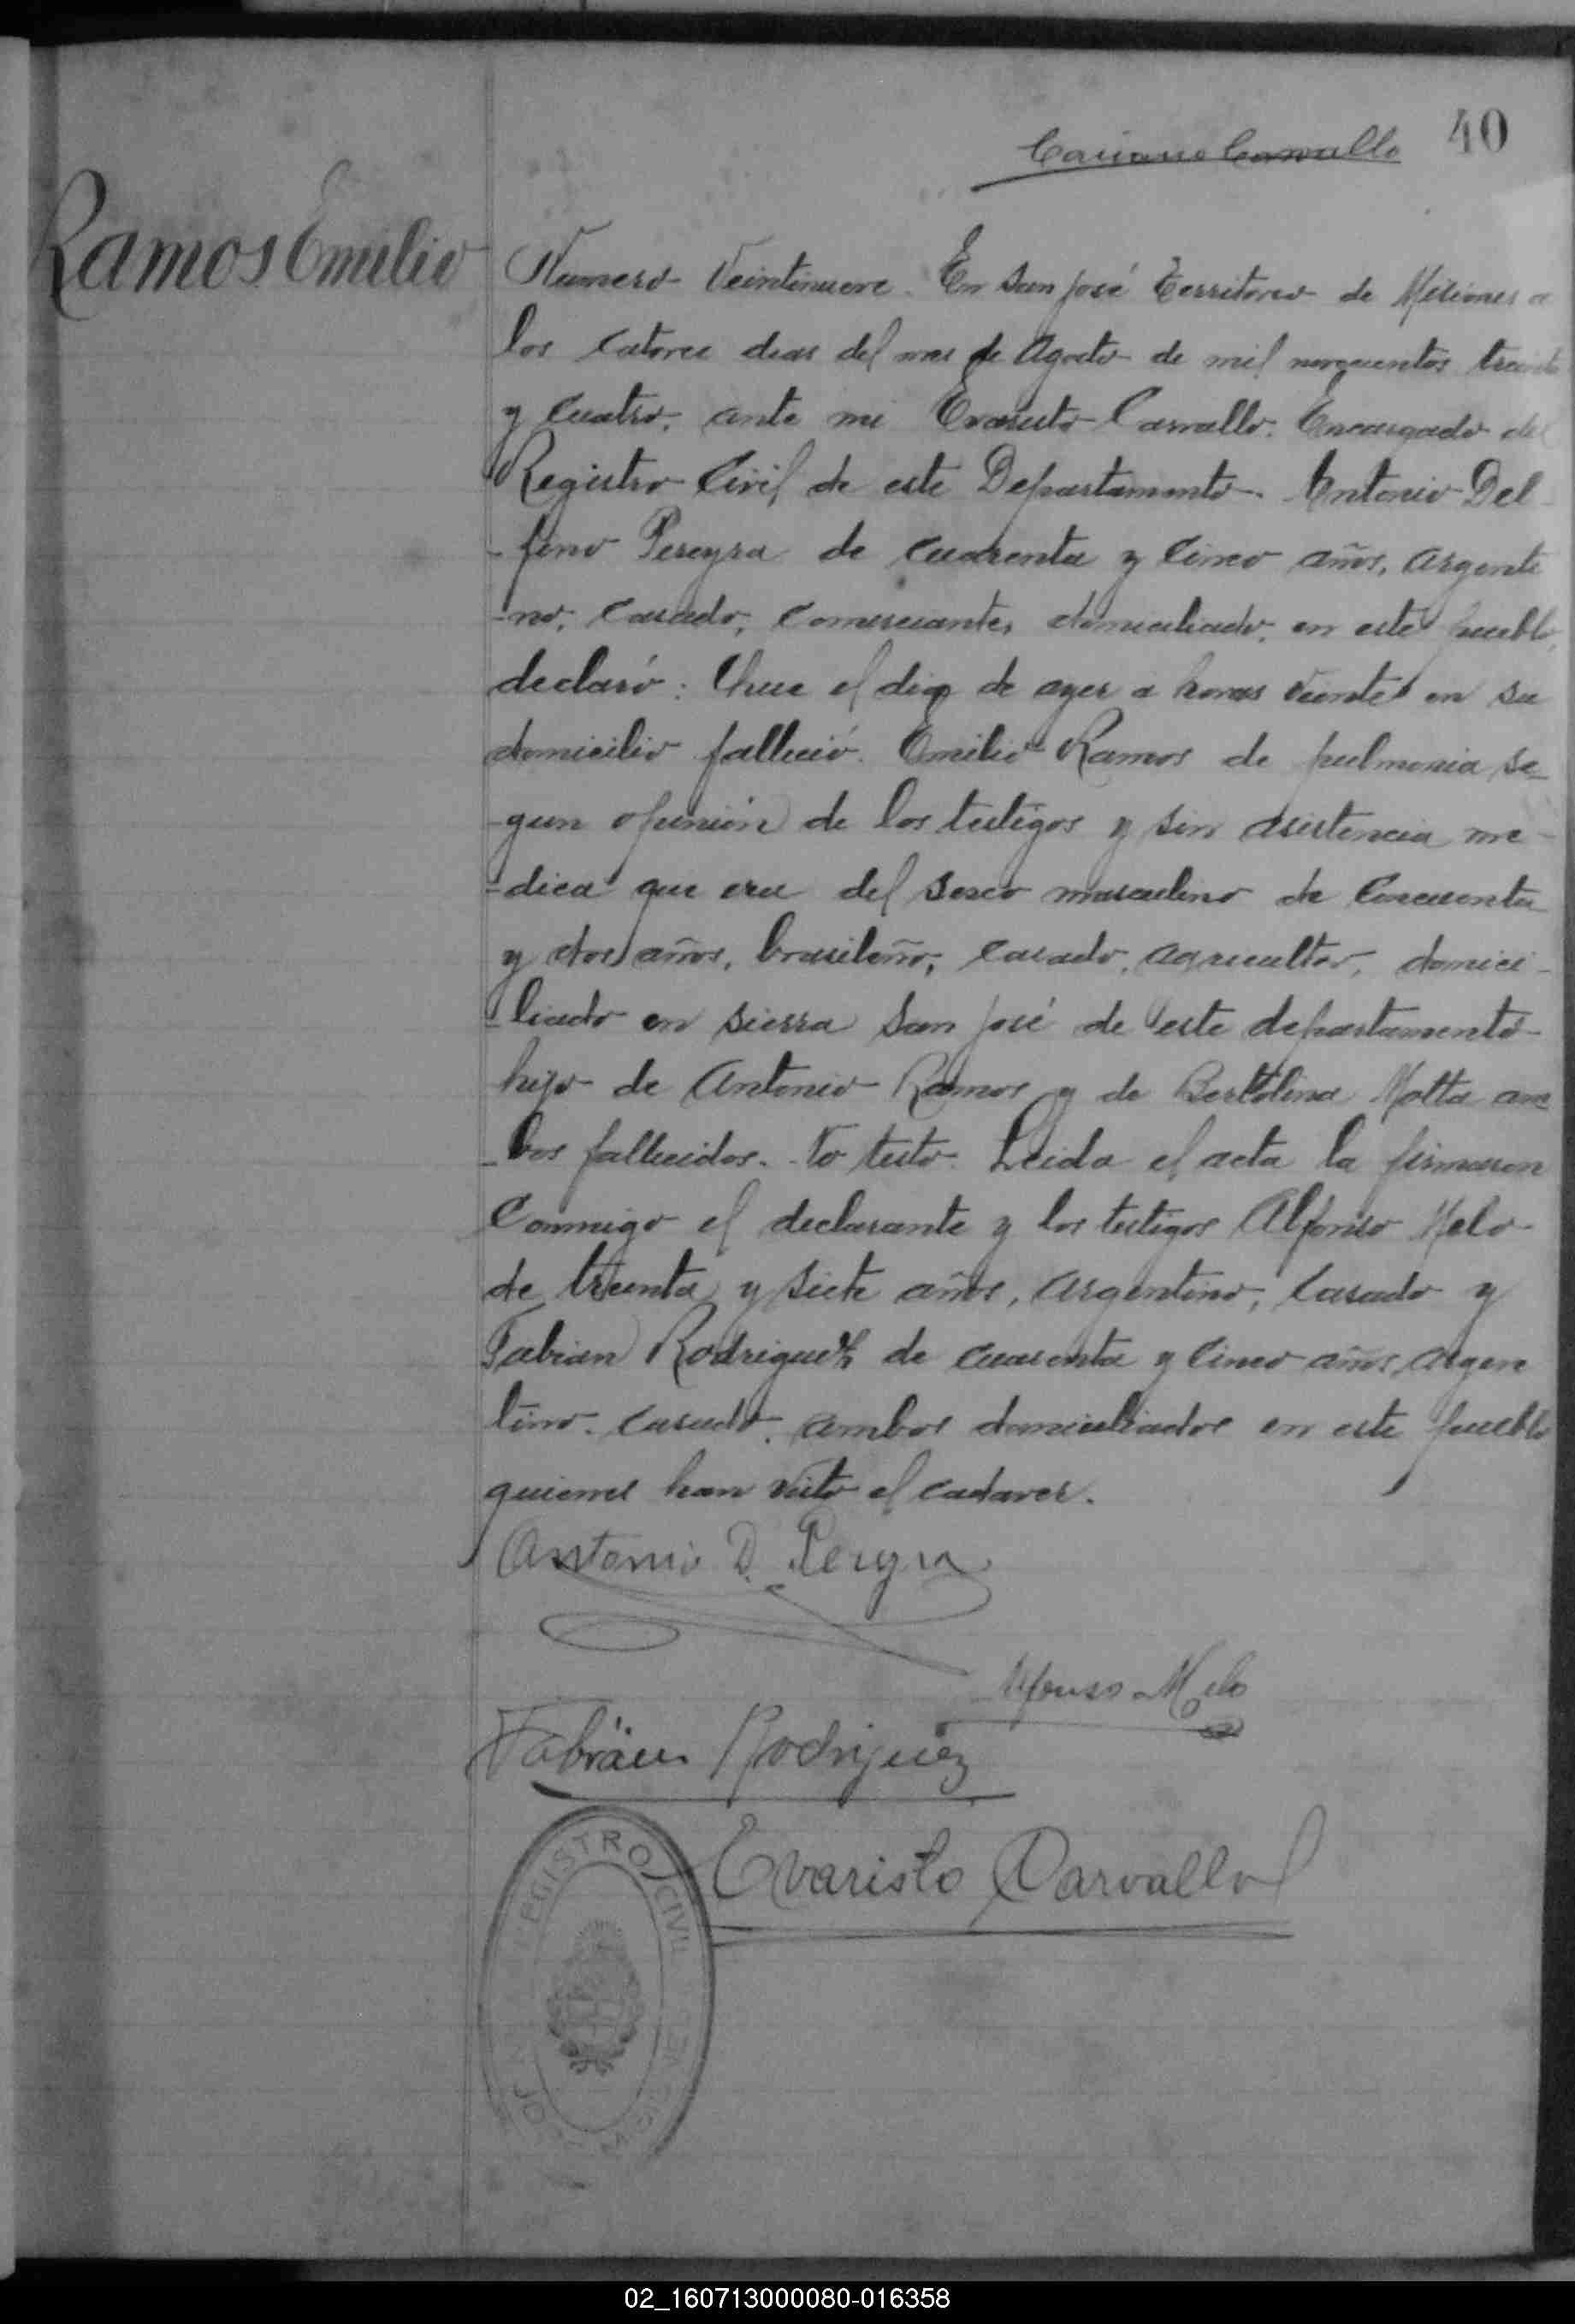 40
Carvallo
Ramos Emilio
Numero Veintinueve. En San José Territorio de Misiones a
los catorce dias del mes de Agosto de mil novecientos treinta
y cuatro, ante mi Evaristo Carvallo. Encargado del
Registro Civil de este Departamento. Antonio Del
-fino Pereyra de cuarenta y cinco años, argenti
-no, casado, comerciante, domiciliado, en este pueblo,
declaró: Que el dia de ayer a horas veinte en su
domicilio falleció. Emilio Ramos de pulmonia se
-gun opinión de los testigos y sin asistencia me-
-dica que era del sexo masculino de cincuenta
y dos años, brasileño, casado, agricultor, domici-
-liado en sierra San José de este departamento-
hijo de Antonio Ramos y de Bertolina Motta am
-bos fallecidos. No testo. Leida el acta la firmaron
conmigo el declarante y los testigos Alfonso Melo-
de treinta y siete años, argentino, casado y
Fabian Rodriguez de cuarenta y cinco años, argen
tino. casado. ambos domiciliados en este pueblo
quienes han visto el cadaver.
Antonio D. Pereyra
Alfonso Melo
Fabián Rodriguez
Evaristo Carvallo
REGISTRO CIVIL
02_160713000080-016358